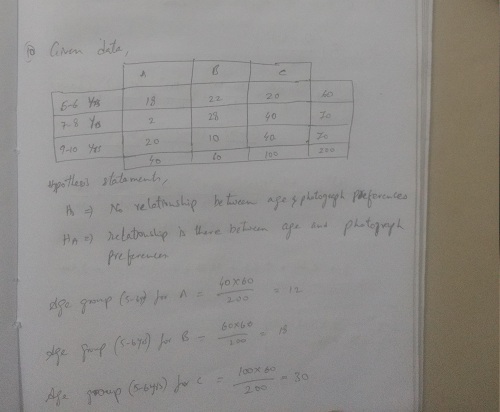 Given data,
A B C
5-6 Yrs 18 22 20 60
7-8 Yrs 2 28 40 70
9-10 Yrs 20 10 40 70
40 60 100 200
Hypothesis statements,
H => No relationship between age & photograph preferences
HA => relationship is there between age and photograph
preferences
Age group (5-6y) for A = 40x60/200 = 12
Age group (5-6yrs) for B = 60x60/200 = 18
Age group (5-6yrs) for C = 100x60/200 = 30